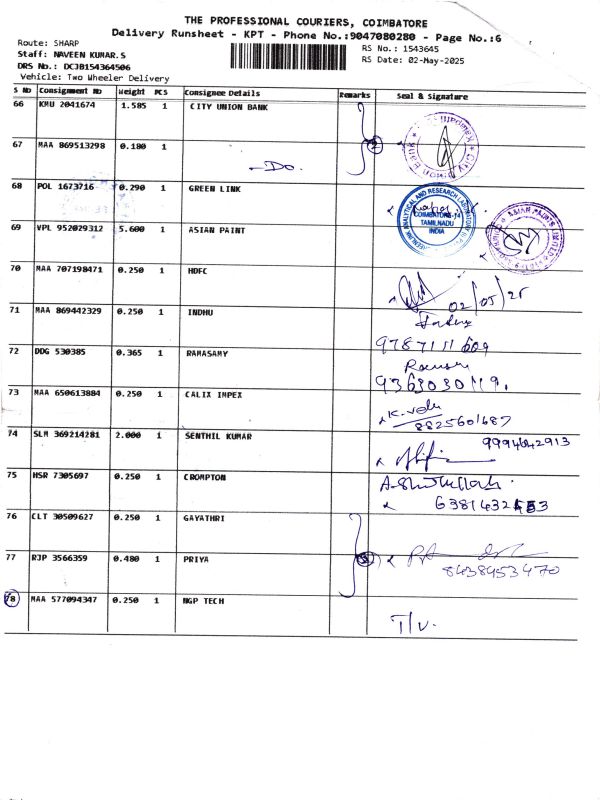 THE PROFESSIONAL COURIERS, COIMBATORE
Delivery Runsheet - KPT - Phone No.:9047080280 - Page No.:6
Route: SHARP
RS No.: 1543645
Staff: NAVEEN KUMAR.S
RS Date: 02-May-2025
DRS No.: DCJB154364506
Vehicle: Two Wheeler Delivery
S No Consignment No Weight PCS Consignee Details Remarks Seal & Signature
66 KMU 2041674 1.585 1 CITY UNION BANK
67 MAA 869513298 0.180 1 -Do.
68 POL 1673716 0.290 1 GREEN LINK
COIMBATORE-14
TAMILNADU
INDIA
69 VPL 952029312 5.600 1 ASIAN PAINT
70 MAA 707198471 0.250 1 HDFC
02/05/25
71 MAA 869442329 0.250 1 INDHU
9787111609
72 DDG 530385 0.365 1 RAMASAMY
9363030119.
73 MAA 650613884 0.250 1 CALIX IMPEX
8825601687
74 SLM 369214281 2.000 1 SENTHIL KUMAR
9994642913
75 HSR 7305697 0.250 1 CROMPTON
76 CLT 30509627 0.250 1 GAYATHRI
77 RJP 3566359 0.480 1 PRIYA
8438953470
78 MAA 577094347 0.250 1 NGP TECH
T/V.